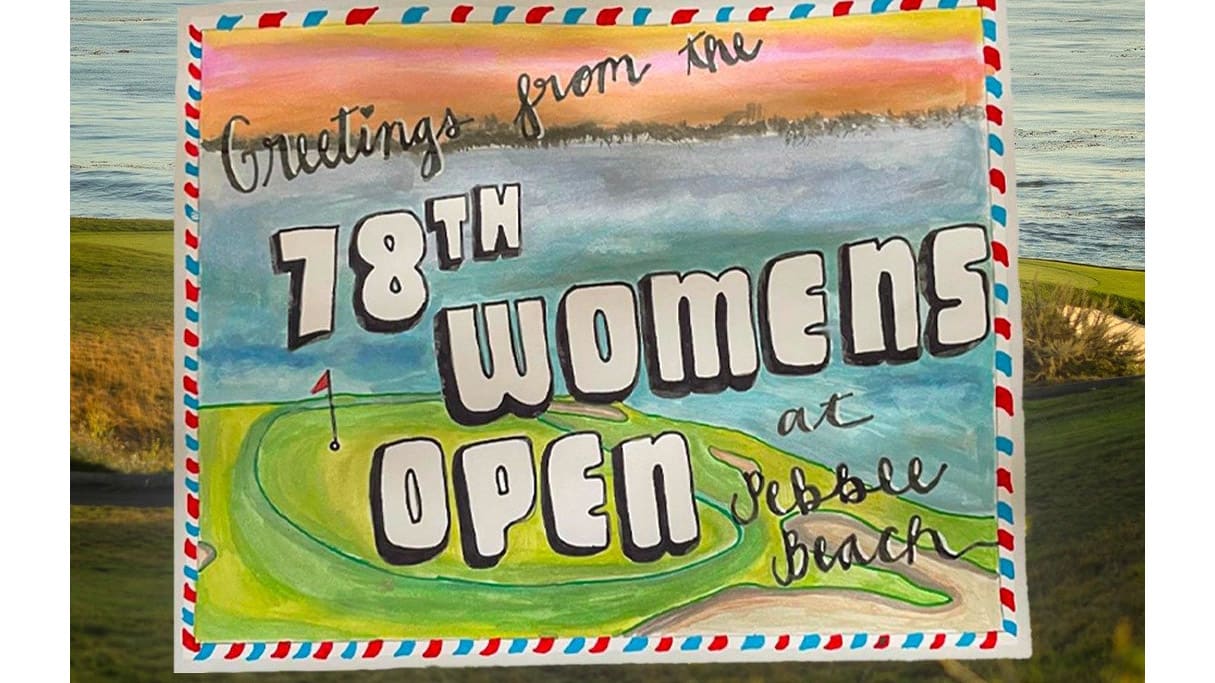 Greetings from the
78TH
WOMENS
OPEN
at
Pebble
Beach